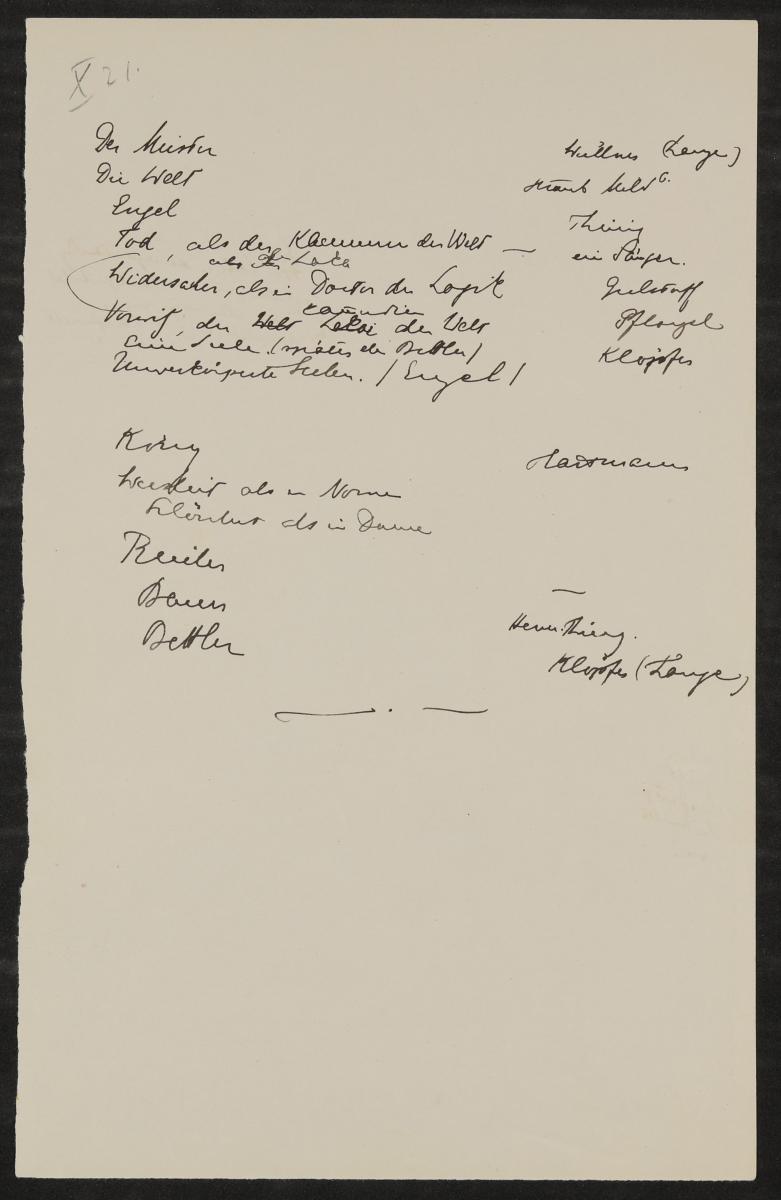 X 21.
Der Meister Wüllner (Lange)
Die Welt
Engel Thimig
Tod, als der Kämmerer der Welt — ein Sänger.
als
Widersacher, als ein Doctor der Logik
Vorwitz, der Welt Lakai der Welt
Eine Seele. (später der Bettler)
Unverkörperte Seelen. / Engel / Klöpfer
König Hartmann
Weisheit als eine Nonne
Schönheit als eine Dame
Reicher
Bauer —
Bettler Herm. Thimig.
Klöpfer (Lange)